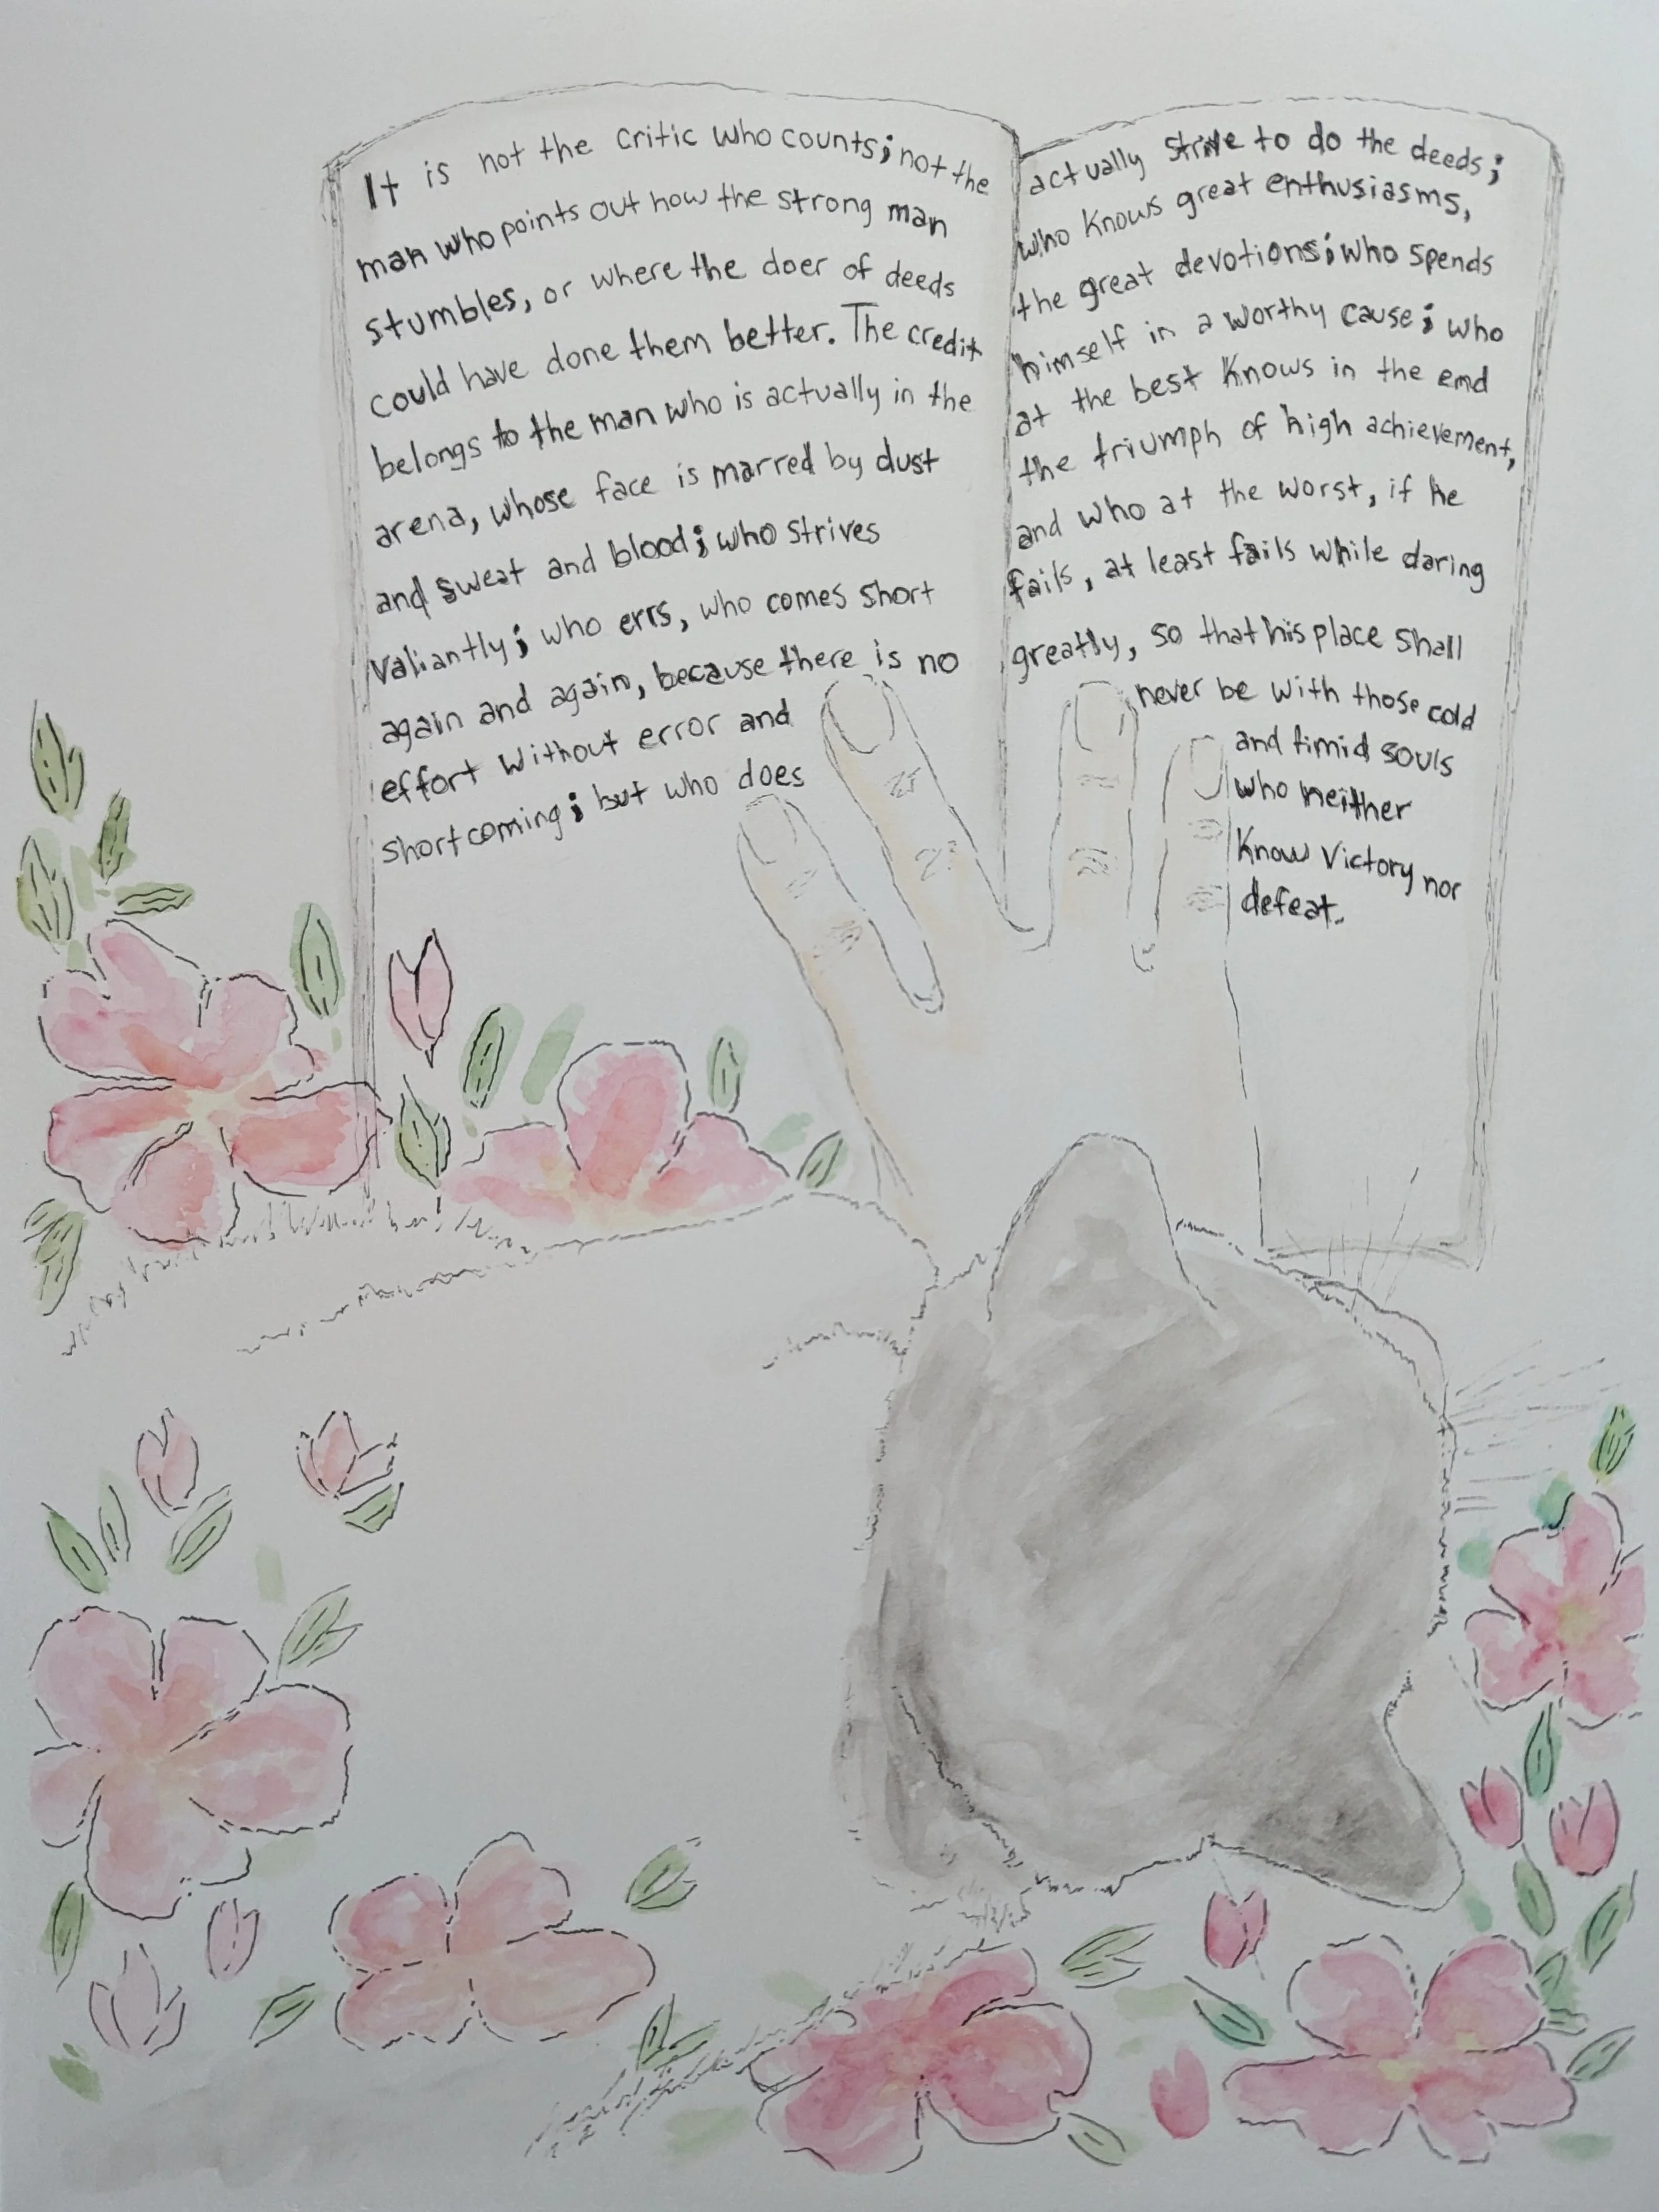 It is not the critic who counts; not the
man who points out how the strong man
stumbles, or where the doer of deeds
could have done them better. The credit
belongs to the man who is actually in the
arena, whose face is marred by dust
and sweat and blood; who strives
valiantly; who errs, who comes short
again and again, because there is no
effort without error and
shortcoming; but who does
actually strive to do the deeds;
who knows great enthusiasms,
the great devotions; who spends
himself in a worthy cause; who
at the best knows in the end
the triumph of high achievement,
and who at the worst, if he
fails, at least fails while daring
greatly, so that his place shall
never be with those cold
and timid souls
who neither
know victory nor
defeat.